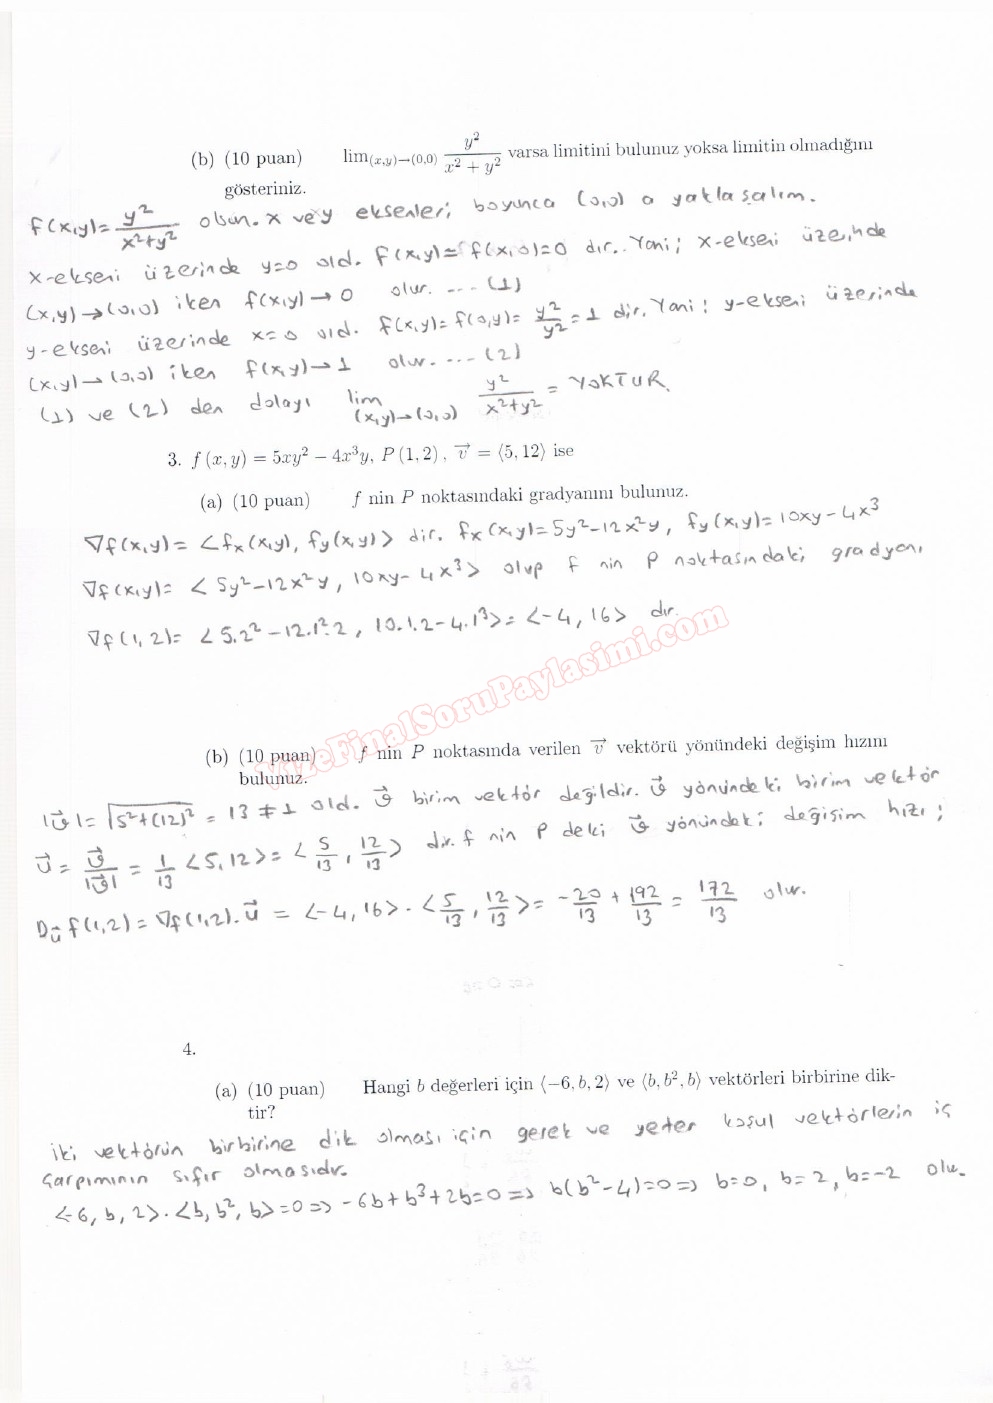 (b) (10 puan) lim(x,y)→(0,0) y²/(x² + y²) varsa limitini bulunuz yoksa limitin olmadığını
gösteriniz.
f(x,y)= y²/(x²+y²) olsun. x ve y eksenleri boyunca (0,0) a yaklaşalım.
x-ekseni üzerinde y=0 old. f(x,y)= f(x,0)=0 dır. Yani; x-ekseni üzerinde
(x,y)→(0,0) iken f(x,y)→0 olur. ... (1)
y-ekseni üzerinde x=0 old. f(x,y)= f(0,y)= y²/y² = 1 dir. Yani; y-ekseni üzerinde
(x,y)→(0,0) iken f(x,y)→1 olur. ... (2)
(1) ve (2) den dolayı lim (x,y)→(0,0) y²/(x²+y²) = YOKTUR.
3. f(x, y) = 5xy² − 4x³y, P(1, 2), v⃗ = ⟨5, 12⟩ ise
(a) (10 puan) f nin P noktasındaki gradyanını bulunuz.
∇f(x,y)= <fx(x,y), fy(x,y)> dir. fx(x,y)=5y²-12x²y, fy(x,y)=10xy-4x³
∇f(x,y)= <5y²-12x²y, 10xy-4x³> olup f nin P noktasındaki gradyanı
∇f(1,2)= <5.2²-12.1².2, 10.1.2-4.1³>= <-4,16> dır.
VizeFinalSoruPaylasimi.com
(b) (10 puan) f nin P noktasında verilen v⃗ vektörü yönündeki değişim hızını
bulunuz.
|v⃗|= √(5²+(12)²) = 13 ≠ 1 old. v⃗ birim vektör değildir. v⃗ yönündeki birim vektör
u⃗ = v⃗/|v⃗| = 1/13 <5,12>= <5/13, 12/13> dir. f nin P deki v⃗ yönündeki değişim hızı;
Du⃗ f(1,2)= ∇f(1,2).u⃗ = <-4,16>.<5/13, 12/13>= -20/13 + 192/13 = 172/13 olur.
4.
(a) (10 puan) Hangi b değerleri için ⟨−6, b, 2⟩ ve ⟨b, b², b⟩ vektörleri birbirine dik-
tir?
İki vektörün birbirine dik olması için gerek ve yeter koşul vektörlerin iç
çarpımının sıfır olmasıdır.
<-6, b, 2>.<b, b², b>=0 => -6b+b³+2b=0 => b(b²-4)=0 => b=0, b=2, b=-2 olur.